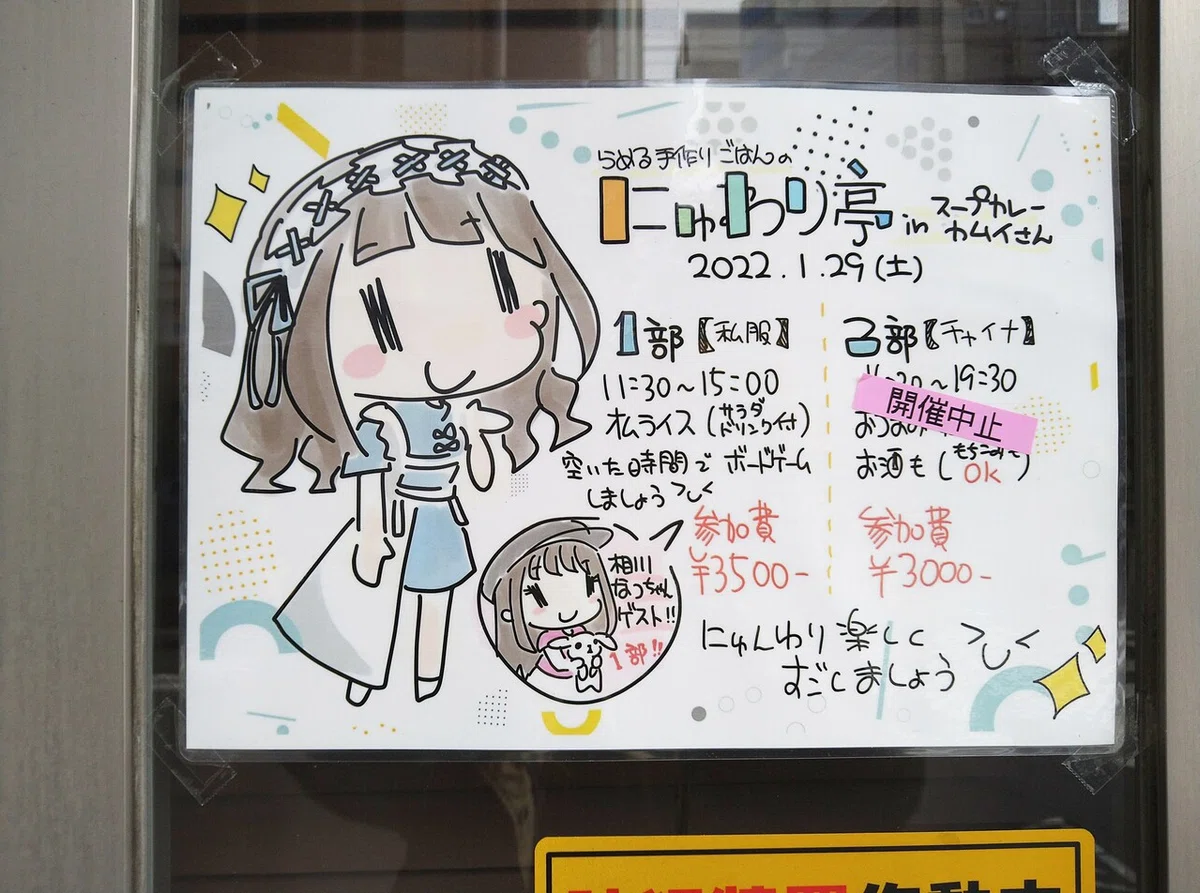 らめる手作りごはんの
にゅわり亭 in スープカレー
カムイさん
2022.1.29(土)
1部【私服】
11:30～15:00
オムライス(サラダ
ドリンク付)
空いた時間でボードゲーム
しましょう
参加費
¥3500-
2部【チャイナ】
～19:30
開催中止
お酒も(もちろん
OK)
参加費
¥3000-
相川
なっちゃん
ゲスト!!
1部!!
にゅんわり楽しく
すごしましょう